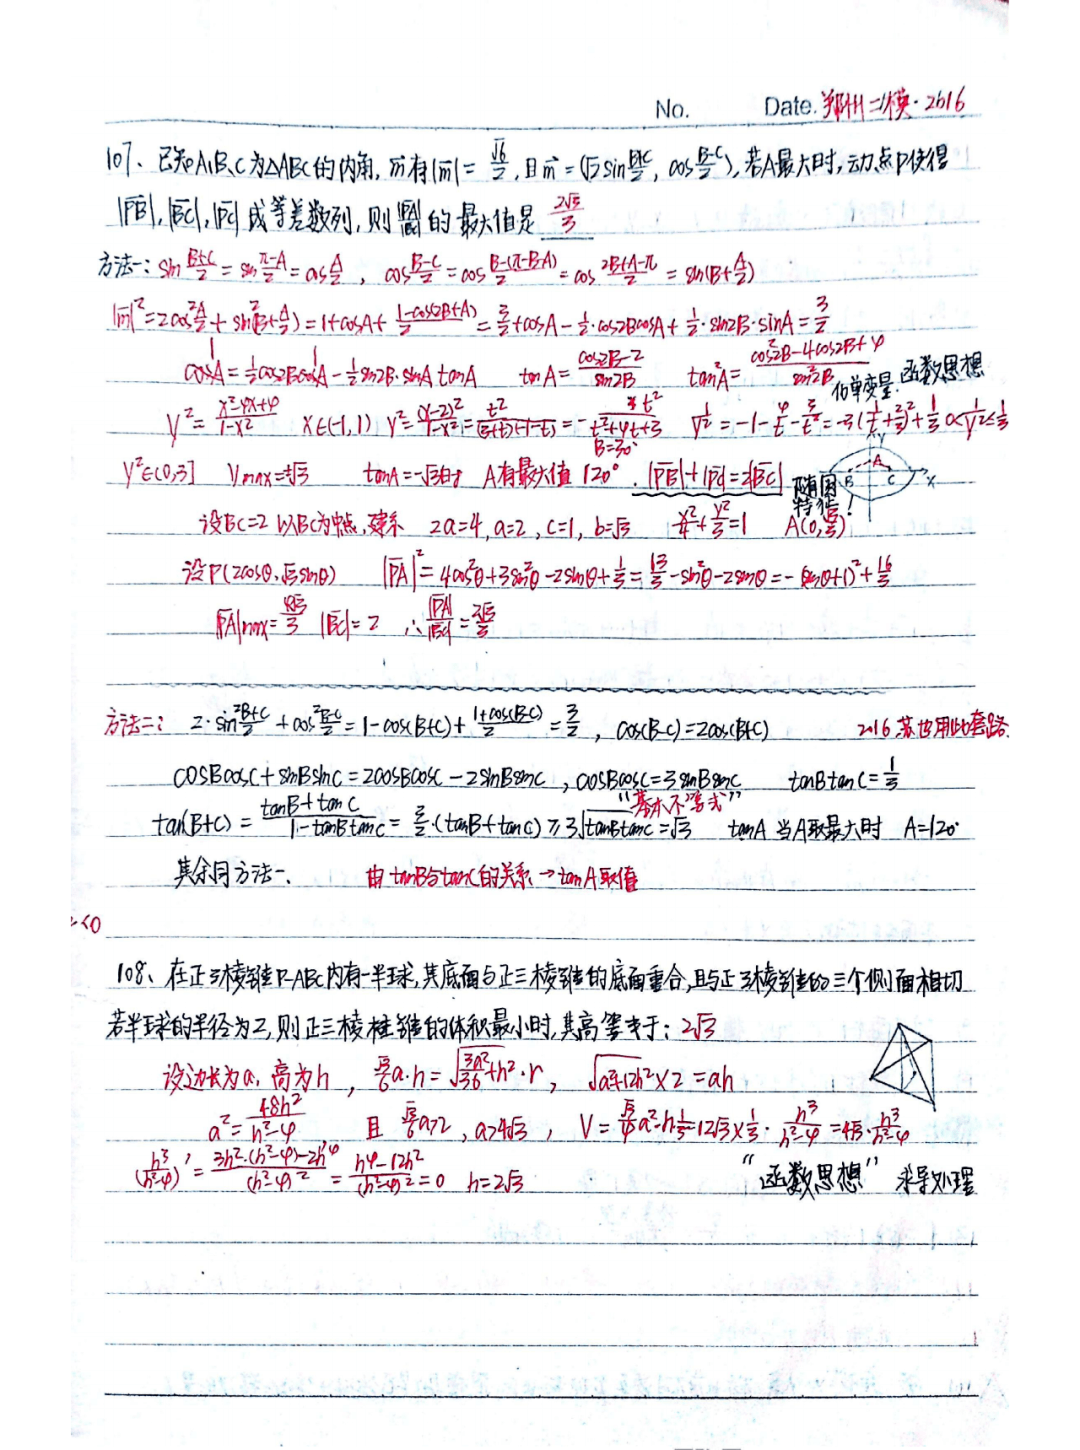 No. Date. 郑州二模·2016
107、已知A、B、C为△ABC的内角,而有|m|=√6/2,且m=(√2sin(B+C)/2, cos(B-C)/2),若A最大时,动点P使得
|PB|,|BC|,|PC|成等差数列,则|PA|/|BC|的最大值是 2√3/3
方法一:sin(B+C)/2=sin(π-A)/2=cosA/2, cos(B-C)/2=cos(B-(π-B-A))/2=cos(2B+A-π)/2=sin(B+A/2)
|m|²=2cos²A/2+sin²(B+A/2)=1+cosA+(1-cos(2B+A))/2=3/2+cosA-1/2·cos2BcosA+1/2·sin2B·sinA=3/2
cosA=1/2cos2BcosA-1/2sin2B·sinA tanA=(cos2B-2)/sin2B tan²A=(cos²2B-4cos2B+4)/sin²2B 函数思想
y²=(x²-4x+4)/(1-x²) x∈(-1,1) y²=(x-2)²/(1-x²)
B=30°
y²∈(0,3] ymax=±√3 tanA=-√3时 A有最大值120°. |PB|+|PC|=2|BC| 随圆
特征!
设BC=2 以BC为中点,建系 2a=4,a=2,c=1,b=√3 x²/4+y²/3=1 A(0,√3/3)
设P(2cosθ,√3sinθ) |PA|²=4cos²θ+3sin²θ-2sinθ+1/3=13/3-sin²θ-2sinθ=-(sinθ+1)²+16/3
|PA|max=4√3/3 |BC|=2 ∴|PA|/|BC|=2√3/3
方法二:2·sin²(B+C)/2+cos²(B-C)/2=1-cos(B+C)+(1+cos(B-C))/2=3/2, cos(B-C)=2cos(B+C) 2016苏也用此套路
cosBcosC+sinBsinC=2cosBcosC-2sinBsinC, cosBcosC=3sinBsinC tanBtanC=1/3
“基本不等式”
tan(B+C)=(tanB+tanC)/(1-tanBtanC)=3/2·(tanB+tanC)≥3√tanBtanC=√3 tanA 当A取最大时 A=120°
其余同方法一、 由tanB与tanC的关系→tanA取值
<0
108、在正三棱锥P-ABC内有一半球,其底面与正三棱锥的底面重合,且与正三棱锥的三个侧面相切
若半球的半径为2,则正三棱柱锥的体积最小时,其高等于:2√3
设边长为a,高为h, √3/6a·h=√(3a²/36+h²)·r, √(a²+12h²)×2=ah
a²=48h²/(h²-4), 且√3/6a>2, a>4√3, V=√3/4a²·h·1/3=12√3×1/3·h³/(h²-4)=4√3·h³/(h²-4)
(h³/(h²-4))'=(3h²·(h²-4)-2h⁴)/(h²-4)²=(h⁴-12h²)/(h²-4)²=0 h=2√3 “函数思想” 求导处理